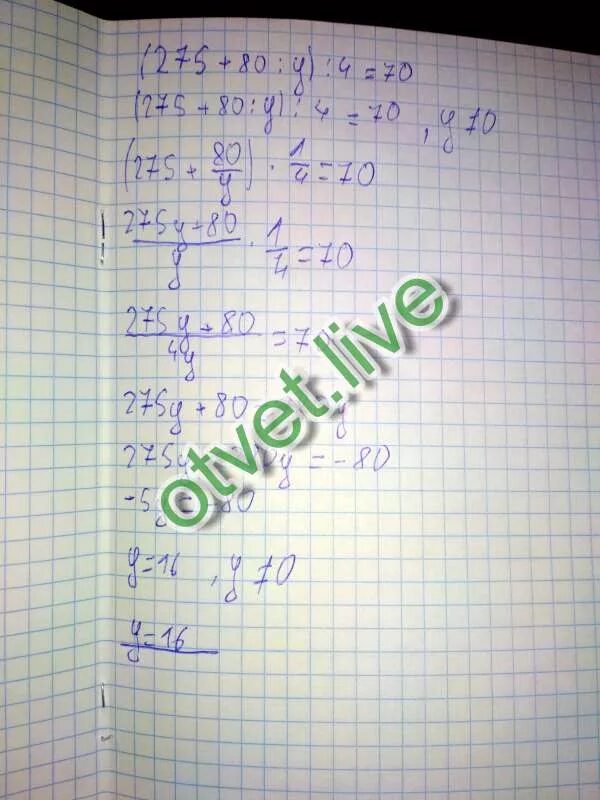 (275 + 80 : y) : 4 = 70
(275 + 80 : y) : 4 = 70 , y 70
(275 + 80/y) · 1/4 = 70
275y + 80/y · 1/4 = 70
275y + 80/4y = 7
275y + 80 y
275y 0y = -80
-5 80
y = 16 , y 70
y = 16
otvet.live